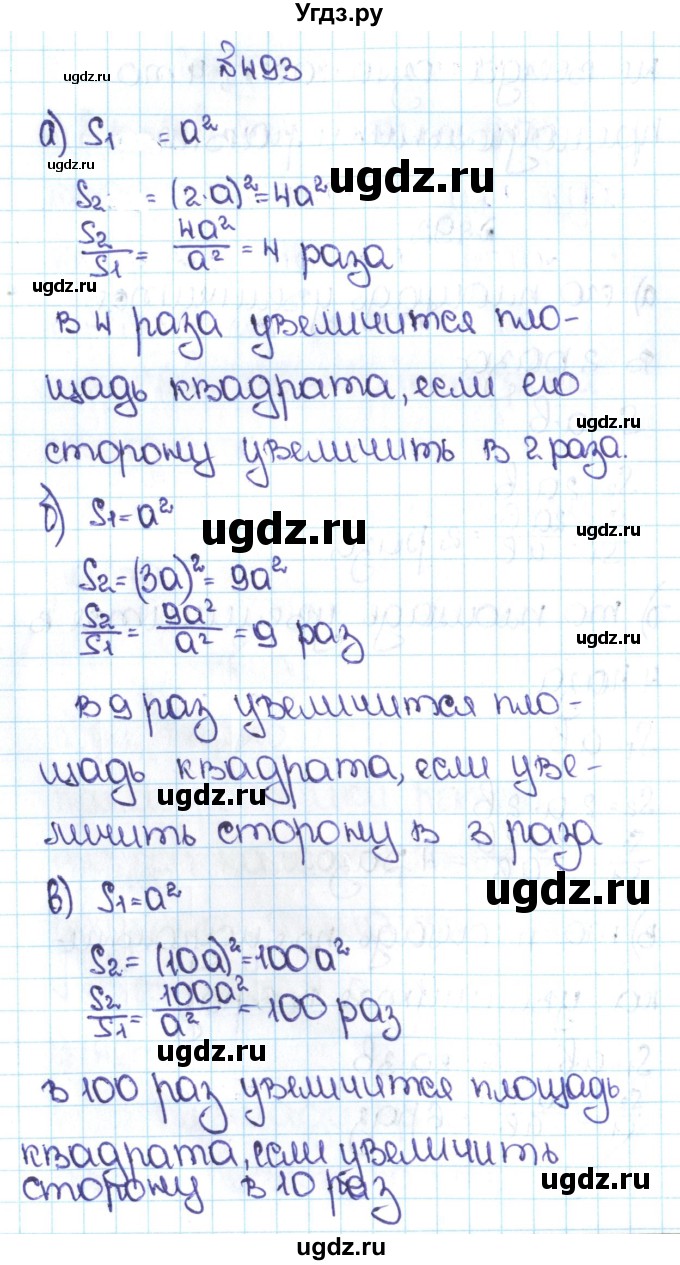 Угдз.ру
№493
ugdz.ru
а) S1 = a²
S2 = (2·a)² = 4a²
ugdz.ru
ugdz.ru
S2/S1 = 4a²/a² = 4 раза
ugdz.ru
В 4 раза увеличится пло-
щадь квадрата, если его
ugdz.ru
сторону увеличить в 2 раза.
б) S1 = a²
ugdz.ru
ugdz.ru
S2 = (3a)² = 9a²
S2/S1 = 9a²/a² = 9 раз
ugdz.ru
В 9 раз увеличится пло-
щадь квадрата, если уве-
ugdz.ru
личить сторону в 3 раза
в) S1 = a²
ugdz.ru
S2 = (10a)² = 100a²
S2/S1 = 100a²/a² = 100 раз
ugdz.ru
в 100 раз увеличится площадь
квадрата, если увеличить
ugdz.ru
сторону в 10 раз
ugdz.ru